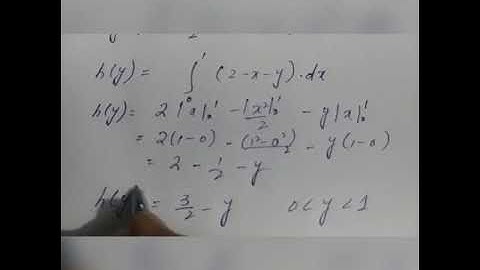 h(y) = ∫₀¹ (2-x-y).dx
h(y) = 2|x|₀¹ - |x²|₀¹/2 - y|x|₀¹
= 2(1-0) - (1²-0²)/2 - y(1-0)
= 2 - 1/2 - y
h(y) = 3/2 - y 0<y<1